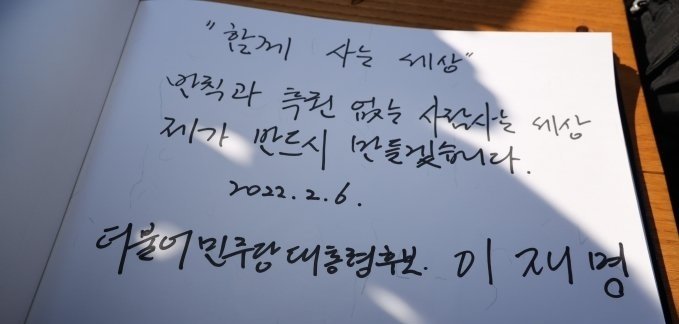 "함께 사는 세상"
반칙과 특권 없는 사람사는 세상
제가 반드시 만들겠습니다.
2022.2.6.
더불어민주당 대통령후보. 이재명